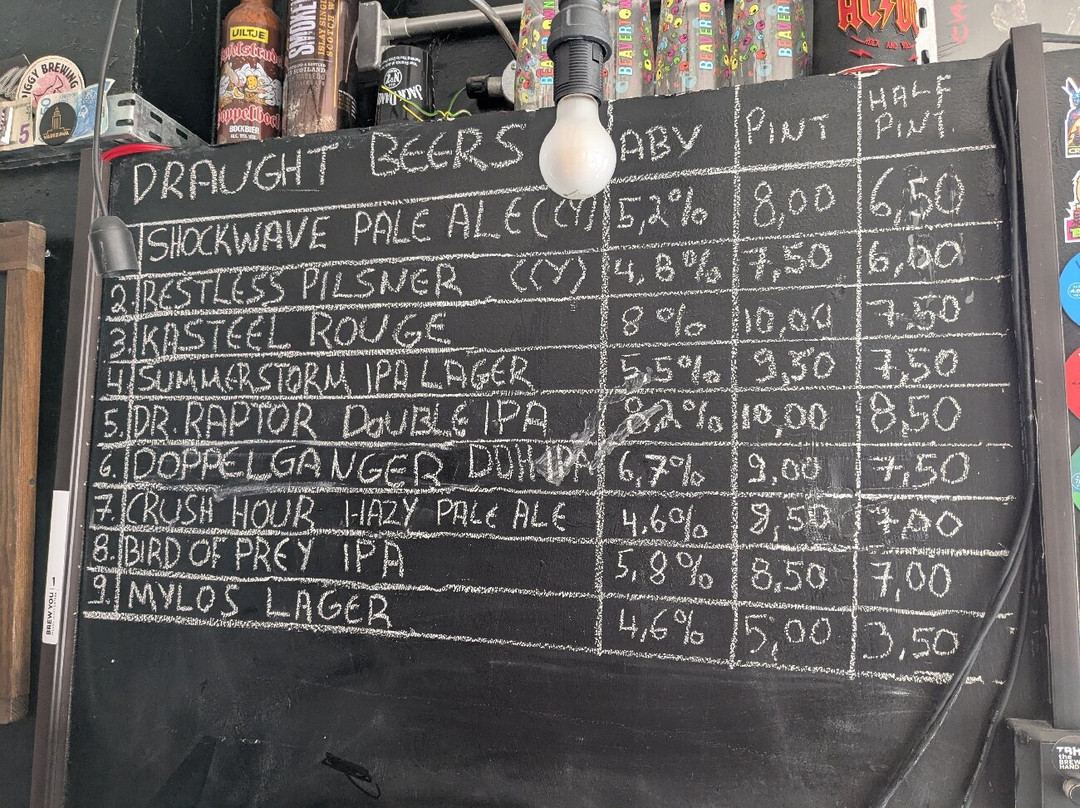 UILTJE
Doppelbock
BOCKBIER
ISLAY SINGLE
SCOTCH W
BEAVERTOWN
BEAVERTOWN
BEAVERTOWN
AC/DC
IGGY BREWING
5
DRAUGHT BEERS ABV PINT HALF PINT.
SHOCKWAVE PALE ALE (CY) 5,2% 8,00 6,50
2. RESTLESS PILSNER (CY) 4,8% 7,50 6,00
3. KASTEEL ROUGE 8% 10,00 7,50
4. SUMMERSTORM IPA LAGER 5,5% 9,50 7,50
5. DR. RAPTOR DOUBLE IPA 8,2% 10,00 8,50
6. DOPPELGANGER DDH IPA 6,7% 9,00 7,50
7. CRUSH HOUR HAZY PALE ALE 4,6% 9,50 7,00
8. BIRD OF PREY IPA 5,8% 8,50 7,00
9. MYLOS LAGER 4,6% 5,00 3,50
BREW YOU